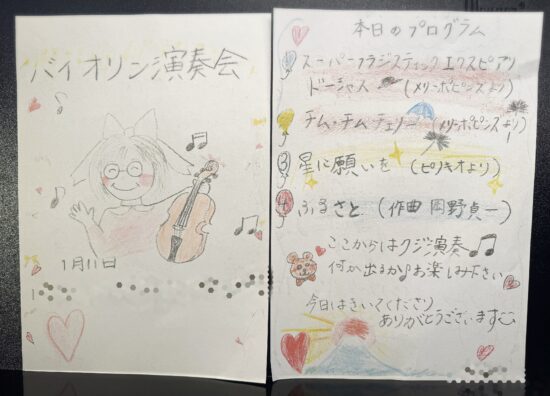 バイオリン演奏会
1月11日
本日のプログラム
① スーパーカラフラジスティックエクスピアリ
ドーシャス (メリーポピンズより)
② チム・チムチェリー (メリーポピンズより)
③ 星に願いを (ピノキオより)
④ ふるさと (作曲 岡野貞一)
ここからはクジ演奏♫
何が出るか♪お楽しみ下さい
今日はきいてくださり
ありがとうございます